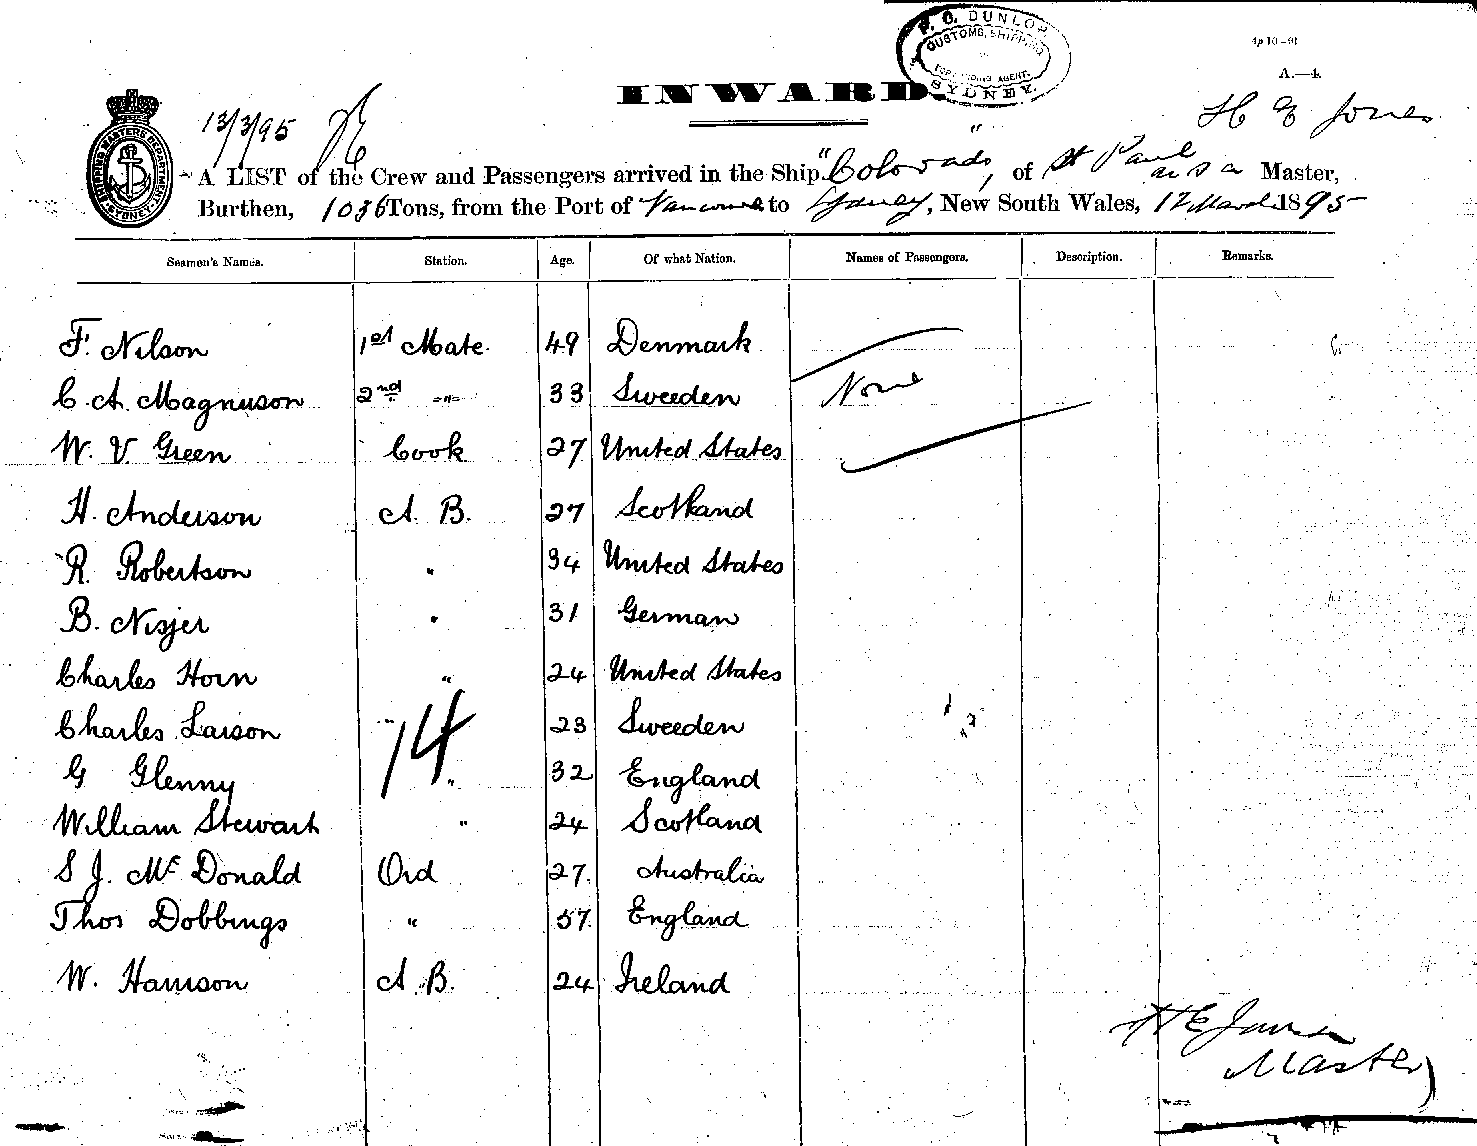 F. C. DUNLOP
CUSTOMS, SHIPPING
FORWARDING AGENT.
SYDNEY.
A.—4.
INWARD.
13/3/95
H E Jones
SHIPPING MASTERS DEPARTMENT
SYDNEY
A LIST of the Crew and Passengers arrived in the Ship "Colorado", of St Paul U S A Master,
Burthen, 1036 Tons, from the Port of Vancouver to Sydney, New South Wales, 12 March 1895
Seamen's Names. Station. Age. Of what Nation. Names of Passengers. Description. Remarks.
F. Nilson 1st Mate. 49 Denmark
C. A. Magnuson 2nd -"- 33 Sweeden None
W. V. Green Cook 27 United States
H. Anderson A. B. 27 Scotland
R. Robertson " 34 United States
B. Nisjer " 31 German
Charles Horn " 24 United States
Charles Larson 23 Sweeden
14
G Glenny " 32 England
William Stewart " 24 Scotland
S J. Mc Donald Ord 27. Australia
Thos Dobbings " 57. England
W. Harrison A. B. 24 Ireland
H E Jones
Master